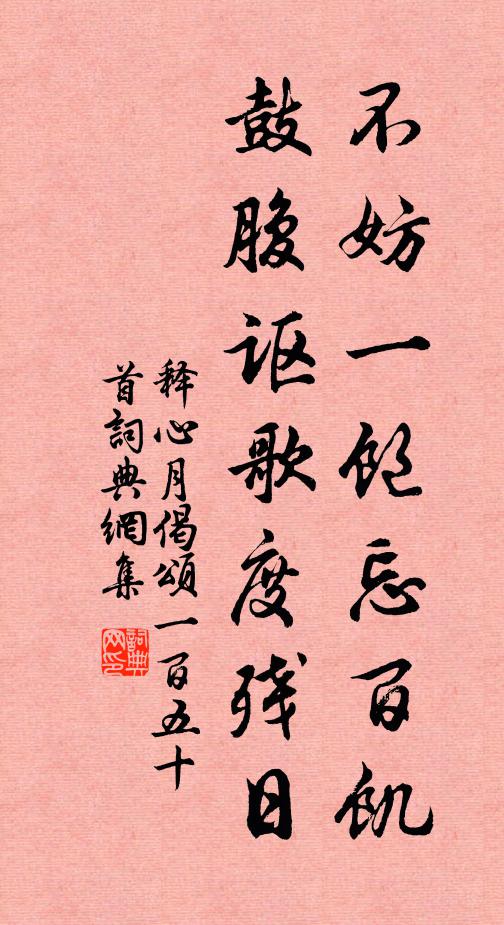 不妨一饱忘百饥
鼓腹讴歌度残日
释心月偈頌一百五十
首詞典網集
詞典
网印